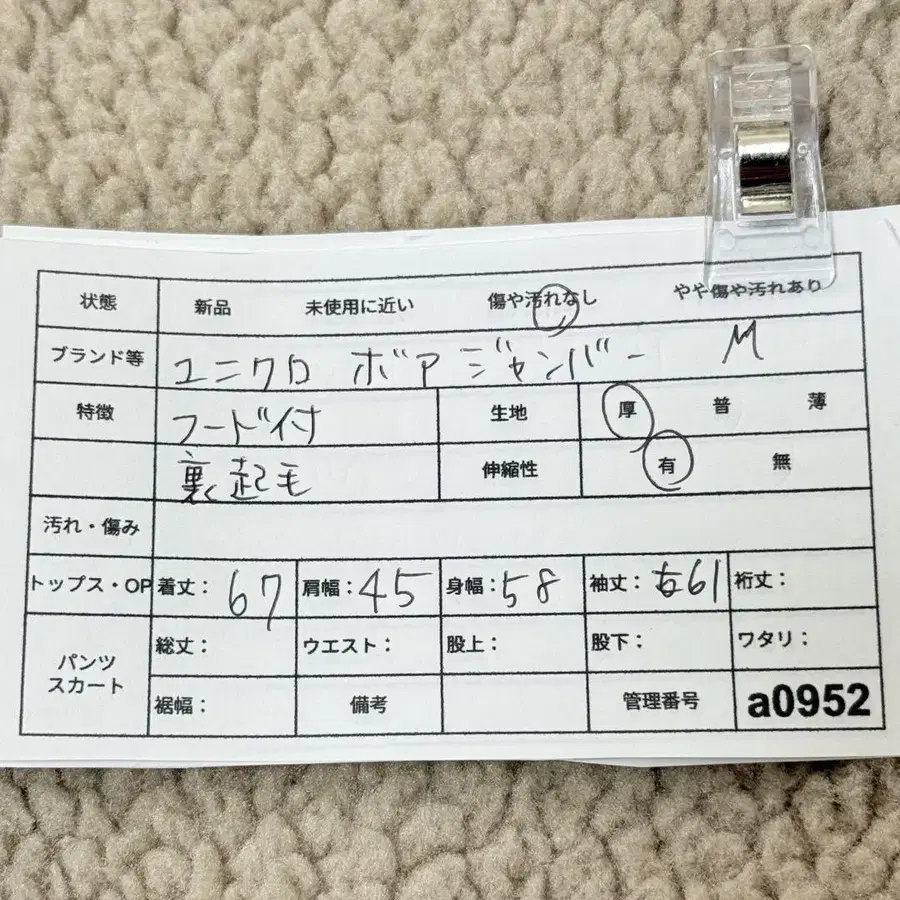 状態 新品 未使用に近い 傷や汚れなし やや傷や汚れあり
ブランド等 ユニクロ ボア ジャンバー M
特徴 フード付 生地 厚 普 薄
裏起毛 伸縮性 有 無
汚れ・傷み
トップス・OP 着丈: 67 肩幅: 45 身幅: 58 袖丈: 61 裄丈:
パンツ スカート 総丈: ウエスト: 股上: 股下: ワタリ:
裾幅: 備考 管理番号 a0952